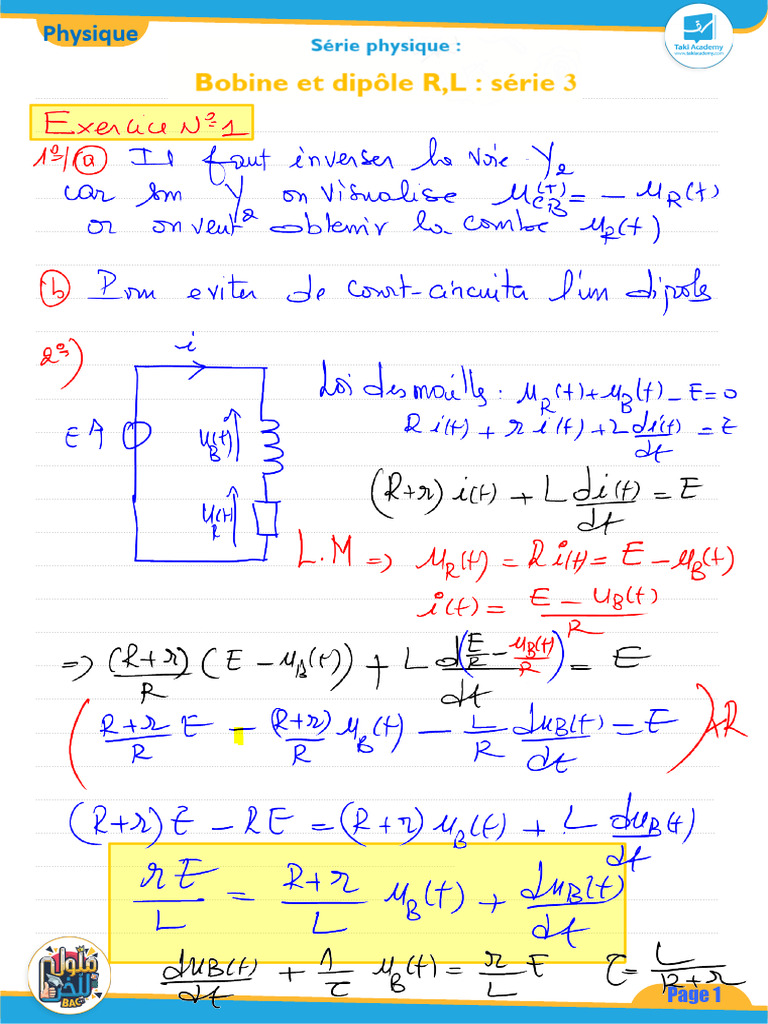 Physique
Série physique :
Taki Academy
www.takiacademy.com
Bobine et dipôle R,L : série 3
Exercice N°1
1°/ (a) Il faut inverser la voie Y₂
car sur Y₂ on visualise u_CB(t) = - u_R(t)
or on veut obtenir la courbe u_R(t)
(b) Pour eviter de court-circuiter l'un dipole
2°)
i
Loi des mailles : u_R(t) + u_B(t) - E = 0
E
u_B(t)
R i(t) + r i(t) + L di(t)/dt = E
(R+r) i(t) + L di(t)/dt = E
u_R(t)
L.M => u_R(t) = R i(t) = E - u_B(t)
i(t) = (E - u_B(t))/R
=> (R+r)/R (E - u_B(t)) + L d(E/R - u_B(t)/R)/dt = E
( (R+r)/R E - (R+r)/R u_B(t) - L/R du_B(t)/dt = E ) × R
(R+r) E - RE = (R+r) u_B(t) + L du_B(t)/dt
rE/L = (R+r)/L u_B(t) + du_B(t)/dt
du_B(t)/dt + 1/τ u_B(t) = r/L E    τ = L/(R+r)
BAC
Page 1